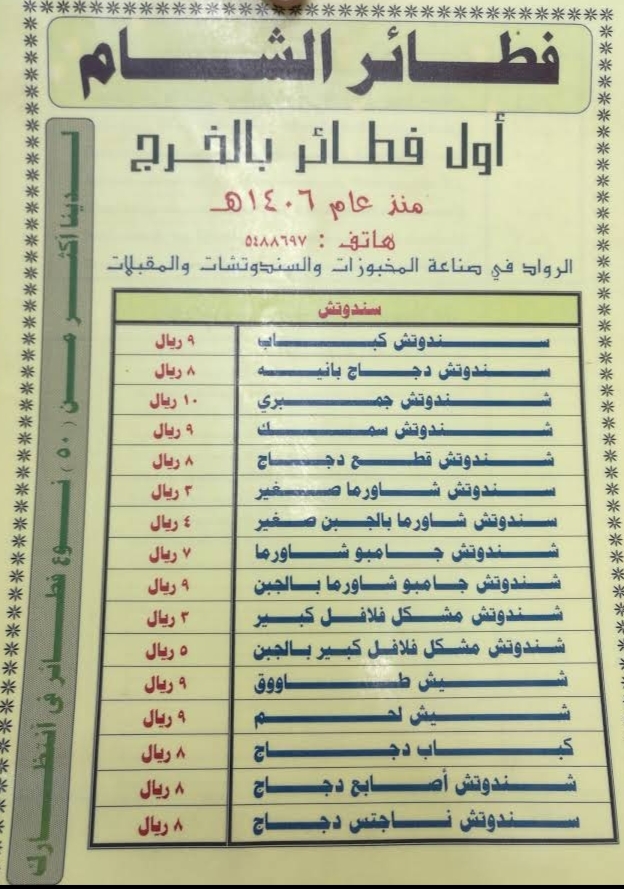 فطائر الشام
أول فطائر بالخرج
منذ عام ١٤٠٦هـ
هاتف : ٥٤٨٨٦٩٧
الرواد في صناعة المخبوزات والسندوتشات والمقبلات
لدينا أكثر من (٥٠) نوع فطائر في أنتظارك
سندوتش
سندوتش كباب ٩ ريال
سندوتش دجاج بانيه ٨ ريال
شندوتش جمبري ١٠ ريال
شندوتش سمك ٩ ريال
شندوتش قطع دجاج ٨ ريال
سندوتش شاورما صغير ٣ ريال
سندوتش شاورما بالجبن صغير ٤ ريال
شندوتش جامبو شاورما ٧ ريال
شندوتش جامبو شاورما بالجبن ٩ ريال
شندوتش مشكل فلافل كبير ٣ ريال
شندوتش مشكل فلافل كبير بالجبن ٥ ريال
شيش طاووق ٩ ريال
شيش لحم ٩ ريال
كباب دجاج ٨ ريال
شندوتش أصابع دجاج ٨ ريال
سندوتش ناجتس دجاج ٨ ريال